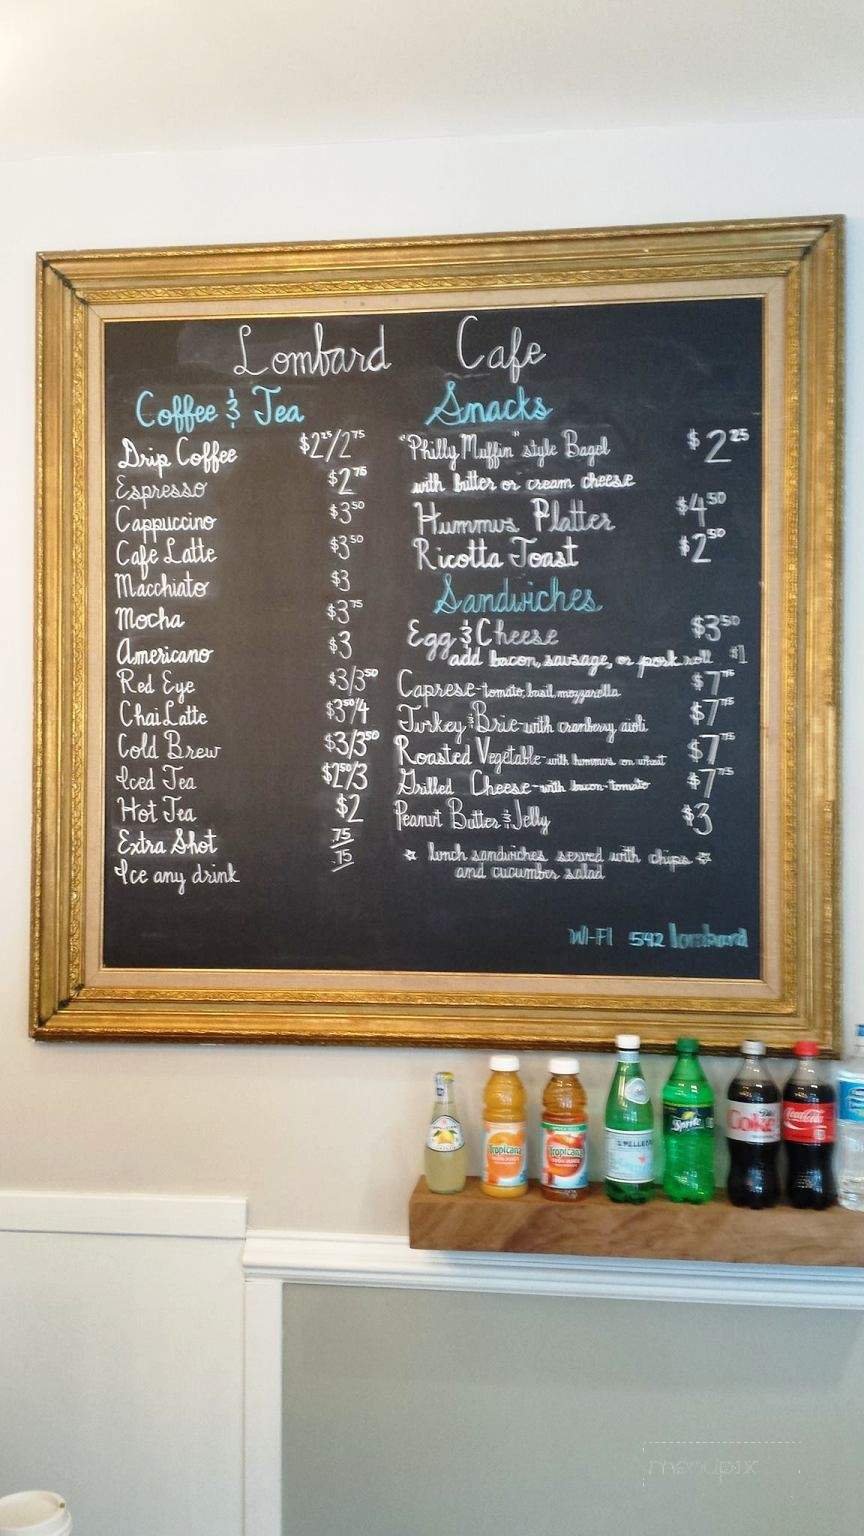 Lombard Cafe
Coffee & Tea
Drip Coffee $2.25/2.75
Espresso $2.75
Cappuccino $3.50
Cafe Latte $3.50
Macchiato $3
Mocha $3.75
Americano $3
Red Eye $3/3.50
Chai Latte $3.50/4
Cold Brew $3/3.50
Iced Tea $2.50/3
Hot Tea $2
Extra Shot .75
Ice any drink .75
Snacks
"Philly Muffin" style Bagel $2.25
with butter or cream cheese
Hummus Platter $4.50
Ricotta Toast $2.50
Sandwiches
Egg & Cheese $3.50
add bacon, sausage, or pork roll $1
Caprese - tomato, basil, mozzarella $7.75
Turkey & Brie - with cranberry aioli $7.75
Roasted Vegetable - with hummus on wheat $7.75
Grilled Cheese - with bacon - tomato $7.75
Peanut Butter & Jelly $3
☆ lunch sandwiches served with chips ☆
and cucumber salad
WI-FI 542 lombard
Tropicana
Tropicana
S.PELLEGRINO
Sprite
Diet
Coke
Coca-Cola
menupix